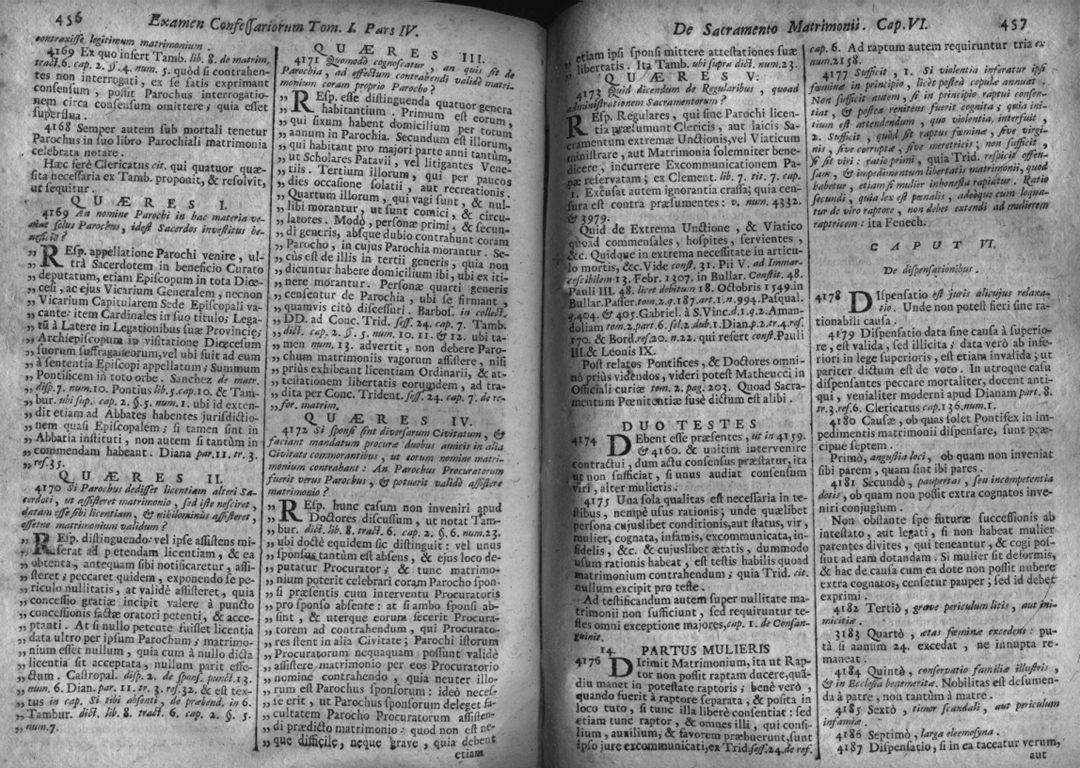 456 Examen Confessariorum Tom. I. Pars IV.
contraxisse legitimum matrimonium.
4169 Ex quo infert Tamb. lib. 8. de matrim.
tract. 6. cap. 2. §. 4. num. 5. quòd si contrahen-
tes non interrogati, ex se satis exprimant
consensum, possit Parochus interrogatio-
nem circa consensum omittere; quia esset
superflua.
4168 Semper autem sub mortali tenetur
Parochus in suo libro Parochiali matrimonia
celebrata notare.
Hæc ferè Clericatus cit. qui quatuor quæ-
sita necessaria ex Tamb. proponit, & resolvit,
ut sequitur.
QUÆRES I.
4169 An nomine Parochi in hac materia ve-
niat solus Parochus, idest Sacerdos investitus be-
neficio?
„ REsp. appellatione Parochi venire, ul-
„ trà Sacerdotem in beneficio Curato
„ deputatum, etiam Episcopum in tota Diœ-
„ cesi, ac ejus Vicarium Generalem, necnon
„ Vicarium Capitularem Sede Episcopali va-
„ cante: item Cardinales in suo titulo; Lega-
„ tū à Latere in Legationibus suæ Provinciæ;
„ Archiepiscopum in visitatione Diœcesum
„ suorum suffraganeorum, vel ubi fuit ad eum
„ à sententia Episcopi appellatum; Summum
„ Pontificem in toto orbe. Sanchez de matr.
„ disp. 7. num. 10. Pontius lib. 5. cap. 10. & Tam-
„ bur. ubi sup. cap. 2. §. 5. num. 1. ubi id exten-
„ dit etiam ad Abbates habentes jurisdictio-
„ nem quasi Episcopalem; si tamen sint in
„ Abbatia instituti, non autem si tantùm in
„ commendam habeant. Diana par. 11. tr. 3.
„ ref. 35.
QUÆRES II.
4170 Si Parochus dedisset licentiam alteri Sa-
cerdoti, ut assisteret matrimonio, sed iste nesciret,
datam esse sibi licentiam, & nihilominus assisteret,
essetne matrimonium validum?
„ REsp. distinguendo: vel ipse assistens mi-
„ serat ad petendam licentiam, & ea
„ obtenta, antequam sibi notificaretur, assi-
„ steret; peccaret quidem, exponendo se pe-
„ riculo nullitatis, at validè assisteret, quia
„ concessio gratiæ incipit valere à puncto
„ concessionis factæ oratori petenti, & acce-
„ ptanti. At si nullo petente fuisset licentia
„ data ultro per ipsum Parochum; matrimo-
„ nium esset nullum, quia cum à nullo dicta
„ licentia sit acceptata, nullum parit effe-
„ ctum. Castropal. disp. 2. de sponf. punct. 13.
„ num. 6. Dian. par. 11. tr. 3. ref. 32. & est tex-
„ tus in cap. Si tibi absenti, de præbend. in 6.
„ Tambur. dict. lib. 8. tract. 6. cap. 2. §. 5.
„ num. 7.
QUÆRES III.
4171 Quomodo cognoscatur, an quis sit de
Parochia, ad effectum contrahendi validè matri-
monium coram proprio Parocho?
„ REsp. esse distinguenda quatuor genera
„ habitantium. Primum est eorum,
„ qui fixum habent domicilium per totum
„ annum in Parochia. Secundum est illorum,
„ qui habitant pro majori parte anni tantùm,
„ ut Scholares Patavii, vel litigantes Vene-
„ tiis. Tertium illorum, qui per paucos
„ dies occasione solatii, aut recreationis
„ Quartum illorum, qui vagi sunt, & nul-
„ libi morantur, ut sunt comici, & circu-
„ latores. Modò, personæ primi, & secun-
„ di generis, absque dubio contrahunt coram
„ Parocho, in cujus Parochia morantur. Se-
„ cùs est de illis in tertii generis, quia non
„ dicuntur habere domicilium ibi, ubi ex iti-
„ nere morantur. Personæ quarti generis
„ censentur de Parochia, ubi se firmant,
„ quamvis citò discessuri. Barbos. in collect.
„ DD. ad Conc. Trid. sess. 24. cap. 7. Tamb.
„ dict. cap. 2. §. 5. num. 10. 11. & 12. ubi ta-
„ men num. 13. advertit, non debere Paro-
„ chum matrimoniis vagorum assistere, nisi
„ priùs exhibeant licentiam Ordinarii, & at-
„ testationem libertatis eorumdem, ad tra-
„ dita per Conc. Trident. sess. 24. cap. 7. de re-
„ for. matrim.
QUÆRES IV.
4172 Si sponsi sint diversarum Civitatum, &
faciant mandatum procuræ duobus amicis in alia
Civitate commorantibus, ut eorum nomine matri-
monium contrahant: An Parochus Procuratorum
fuerit verus Parochus, & potuerit validè assistere
matrimonio?
„ REsp. hunc casum non inveniri apud
„ Doctores discussum, ut notat Tam-
„ bur. dict. lib. 8. tract. 6. cap. 2. §. 6. num. 23.
„ ubi doctè equidem sic distinguit: vel unus
„ sponsus tantùm est absens, & ejus loco de-
„ putatur Procurator; & tunc matrimo-
„ nium poterit celebrari coram Parocho spon-
„ si præsentis cum interventu Procuratoris
„ pro sponso absente: at si ambo sponsi ab-
„ sint, & uterque eorum fecerit Procura-
„ torem ad contrahendum, qui Procurato-
„ res stent in alia Civitate; Parochi istorum
„ Procuratorum nequaquam possunt validè
„ assistere matrimonio per eos Procuratorio
„ nomine contrahendo, quia neuter illo-
„ rum est Parochus sponsorum: ideò neces-
„ se erit, ut Parochus sponsorum deleget fa-
„ cultatem Parocho Procuratorum assisten-
„ di prædicto matrimonio: quod non est ne-
„ que difficile, neque grave, quia debent
etiam
De Sacramento Matrimonii. Cap. VI. 457
„ etiam ipsi sponsi mittere attestationes suæ
„ libertatis. Ita Tamb. ubi supra dict. num. 23.
QUÆRES V.
4173 Quid dicendum de Regularibus, quoad
administrationem Sacramentorum?
REsp. Regulares, qui sine Parochi licen-
tia præsumunt Clericis, aut laicis Sa-
cramentum extremæ Unctionis, vel Viaticum
ministrare, aut Matrimonia solemniter bene-
dicere, incurrere Excommunicationem Pa-
pæ reservatam; ex Clement. lib. 7. tit. 7. cap.
1. Excusat autem ignorantia crassa; quia cen-
sura est contra præsumentes: v. num. 4332.
& 3979.
Quid de Extrema Unctione, & Viatico
quoad commensales, hospites, servientes,
&c. Quidque in extrema necessitate in articu-
lo mortis, &c. Vide const. 31. Pii V. ad Immar-
cescibilem 13. Febr. 1207. in Bullar. Constit. 48.
Pauli III. 48. licet debitum 18. Octobris 1549. in
Bullar. Passer. tom. 2. q. 187. art. 1. n. 994. Pasqual.
q. 404. & 405. Gabriel. à S. Vinc. d. 1. q. 2. Aman-
doliam tom. 2. part. 6. fol. 2. dub. 1. Dian. p. 2. tr. 4. ref.
170. & Bord. ref. 20. n. 22. qui refert const. Pauli
III. & Leonis IX.
Post relatos Pontifices, & Doctores omni-
nò priùs videndos, videri potest Matheucci in
Officiali curiæ tom. 2. pag. 203. Quoad Sacra-
mentum Pœnitentiæ fusè dictum est alibi.
DUO TESTES
4174 DEbent esse præsentes, ut in 4159.
& 4160. & unitim intervenire
contractui, dum actu consensus præstatur, ita
ut non sufficiat, si unus audiat consensum
viri, alter mulieris.
4175 Una sola qualitas est necessaria in te-
stibus, nempè usus rationis; unde quælibet
persona cujuslibet conditionis, aut status, vir,
mulier, cognata, infamis, excommunicata, in-
fidelis, &c. & cujuslibet ætatis, dummodo
usum rationis habeat, est testis habilis quoad
matrimonium contrahendum; quia Trid. cit.
nullum excipit pro teste.
Ad testificandum autem super nullitate ma-
trimonii non sufficiunt, sed requiruntur te-
stes omni exceptione majores, cap. 1. de Consan-
guinit.
14. PARTUS MULIERIS
4176 DIrimit Matrimonium, ita ut Rap-
tor non possit raptam ducere, quã-
diu manet in potestate raptoris; benè verò,
quando fuerit à raptore separata, & posita in
loco tuto, si tunc illa liberè consentiat: sed
etiam tunc raptor, & omnes illi, qui consi-
lium, auxilium, & favorem præbuerunt, sunt
ipso jure excommunicati, ex Trid. sess. 24. de ref.
cap. 6. Ad raptum autem requiruntur tria ex
num. 2158.
4177 Sufficit, 1. Si violentia inferatur ipsi
fœminæ in principio, licèt posteà copulæ annuat.
Non sufficit autem, si in principio raptui consen-
tiat, & posteà renitens fuerit cognita; quia ini-
tium est attendendum, quo violentia, intersuit,
2. Sufficit, quòd sit raptus fœminæ, sive virgi-
nis, sive corruptæ, sive meretricis; non sufficit,
si sit viri: ratio primi, quia Trid. respicit offen-
sam, & impedimentum libertatis matrimonii, quod
habetur, etiam si mulier inhonesta rapiatur. Ratio
secundi, quia lex est pœnalis, adeòque cum loqua-
tur de viro raptore, non debet extendi ad mulierem
raptricem: ita Fenech.
CAPUT VI.
De dispensationibus.
4178 DIspensatio est juris alicujus relaxa-
tio. Unde non potest fieri sine ra-
tionabili causa.
4179 Dispensatio data sine causa à superio-
re, est valida, sed illicita; data verò ab infe-
riori in lege superioris, est etiam invalida; ut
pariter dictum est de voto. In utroque casu
dispensantes peccare mortaliter, docent anti-
qui, venialiter moderni apud Dianam part. 8.
tr. 3. ref. 6. Clericatus cap. 136. num. 1.
4180 Causæ, ob quas solet Pontifex in im-
pedimentis matrimonii dispensare, sunt præ-
cipuè septem.
Primò, angustia loci, ob quam non inveniat
sibi parem, quam sint ibi pares.
4181 Secundò, paupertas, seu incompetentia
dotis, ob quam non possit extra cognatos inve-
niri conjugium.
Non obstante spe futuræ successionis ab
intestato, aut legati, si non habeat mulier
parentes divites, qui teneantur, & cogi pos-
sint ad eam dotandam: Si mulier sit deformis,
& hac de causa cum ea dote non possit nubere
extra cognatos, censetur pauper; sed id debet
exprimi.
4182 Tertiò, grave periculum litis, aut ini-
micitiæ.
3183 Quartò, ætas fœminæ excedens: pu-
tà si annum 24. excedat, ne innupta re-
maneat.
4184 Quintò, conservatio familiæ illustris,
& in Ecclesia benemeritæ. Nobilitas est desumen-
da à patre, non tantùm à matre.
4185 Sextò, timor scandali, aut periculum
infamiæ.
4186 Septimò, larga eleemosyna.
4187 Dispensatio, si in ea taceatur verum,
aut